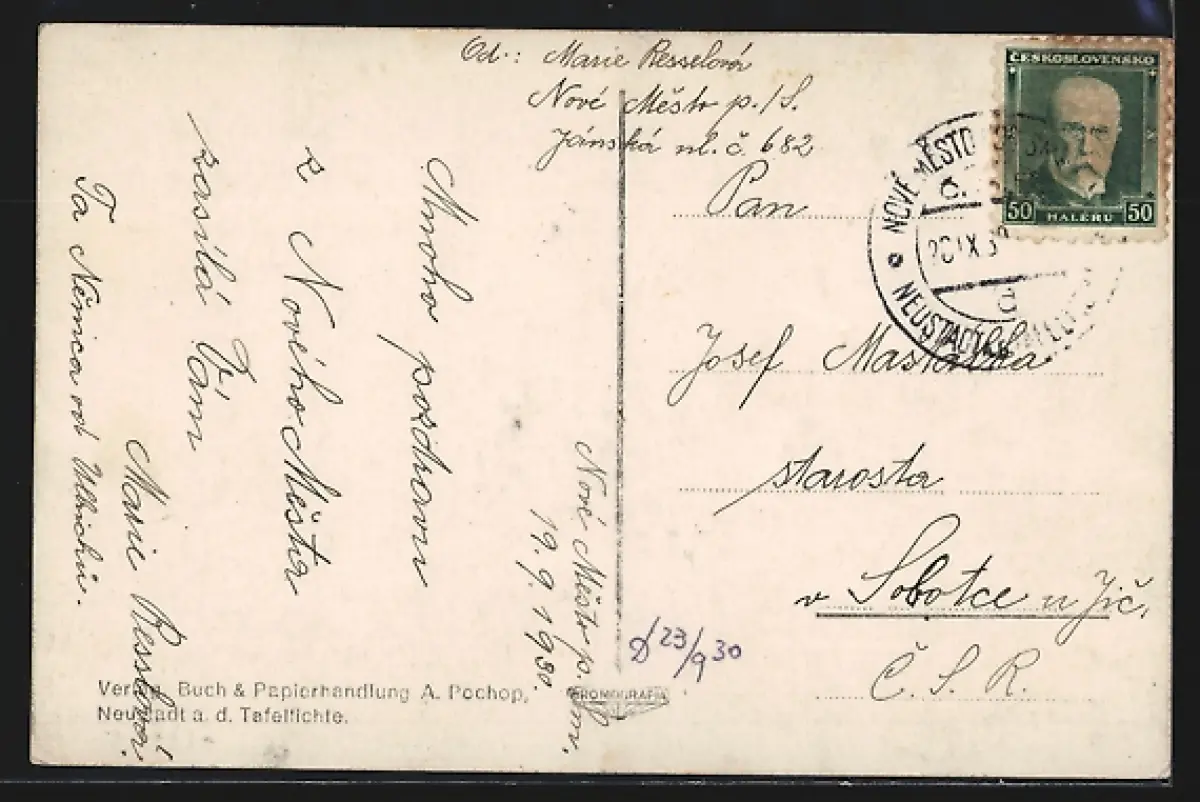 Od.: Marie Resselová
Nové Město p./S.
Jánská ul. č 682
Nové Město p. Sm.
19. 9. 1930.
Mnoho pozdravu
z Nového Města
zasílá Vám
Marie Resslová.
Ta Němica od
ČESKOSLOVENSKO
50 HALÉŘŮ 50
NOVÉ MĚSTO POD SM
20 IX 30
NEUSTADT
Pan
Josef Mastalka
starosta
v Sobotce u Jič.
Č. S. R.
D 23/9 30
Verlag, Buch & Papierhandlung A. Pochop,
Neustadt a. d. Tafelfichte.